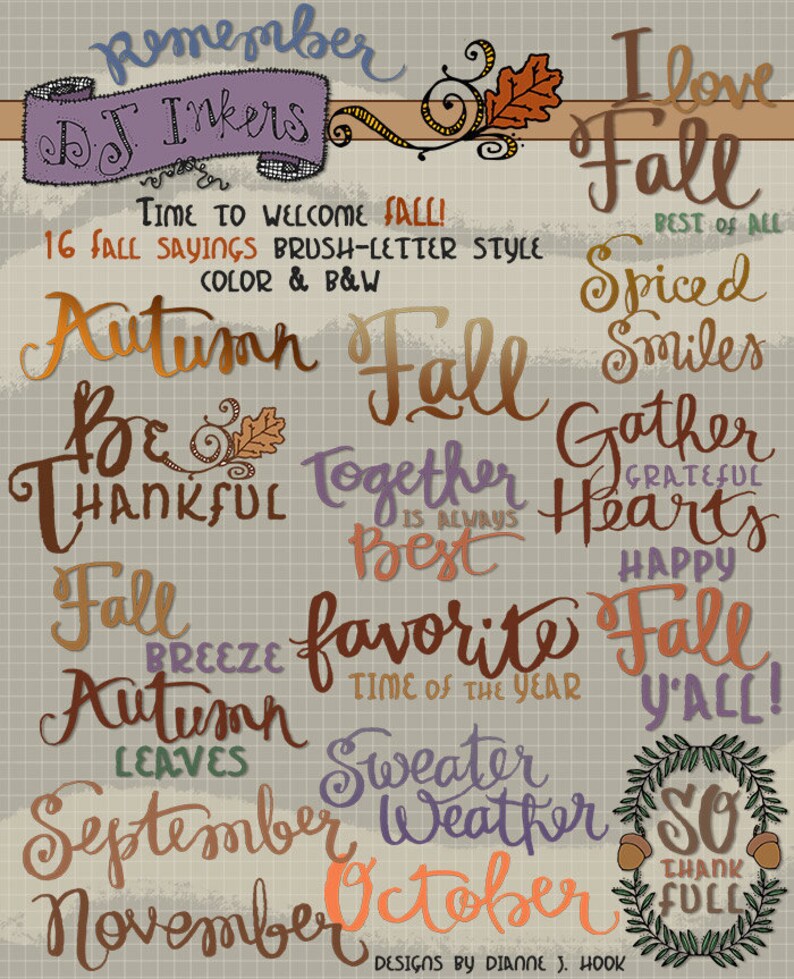 Remember
D.J. Inkers
Time to welcome fall!
16 fall sayings brush-letter style
color & b&w
I love
Fall
best of all
Spiced
Smiles
Autumn
Fall
Be
Thankful
Together
is always
Best
Gather
grateful
Hearts
Fall
breeze
favorite
time of the year
happy
Fall
y'all!
Autumn
leaves
Sweater
Weather
September
October
November
SO
thank
full
designs by Dianne J. Hook